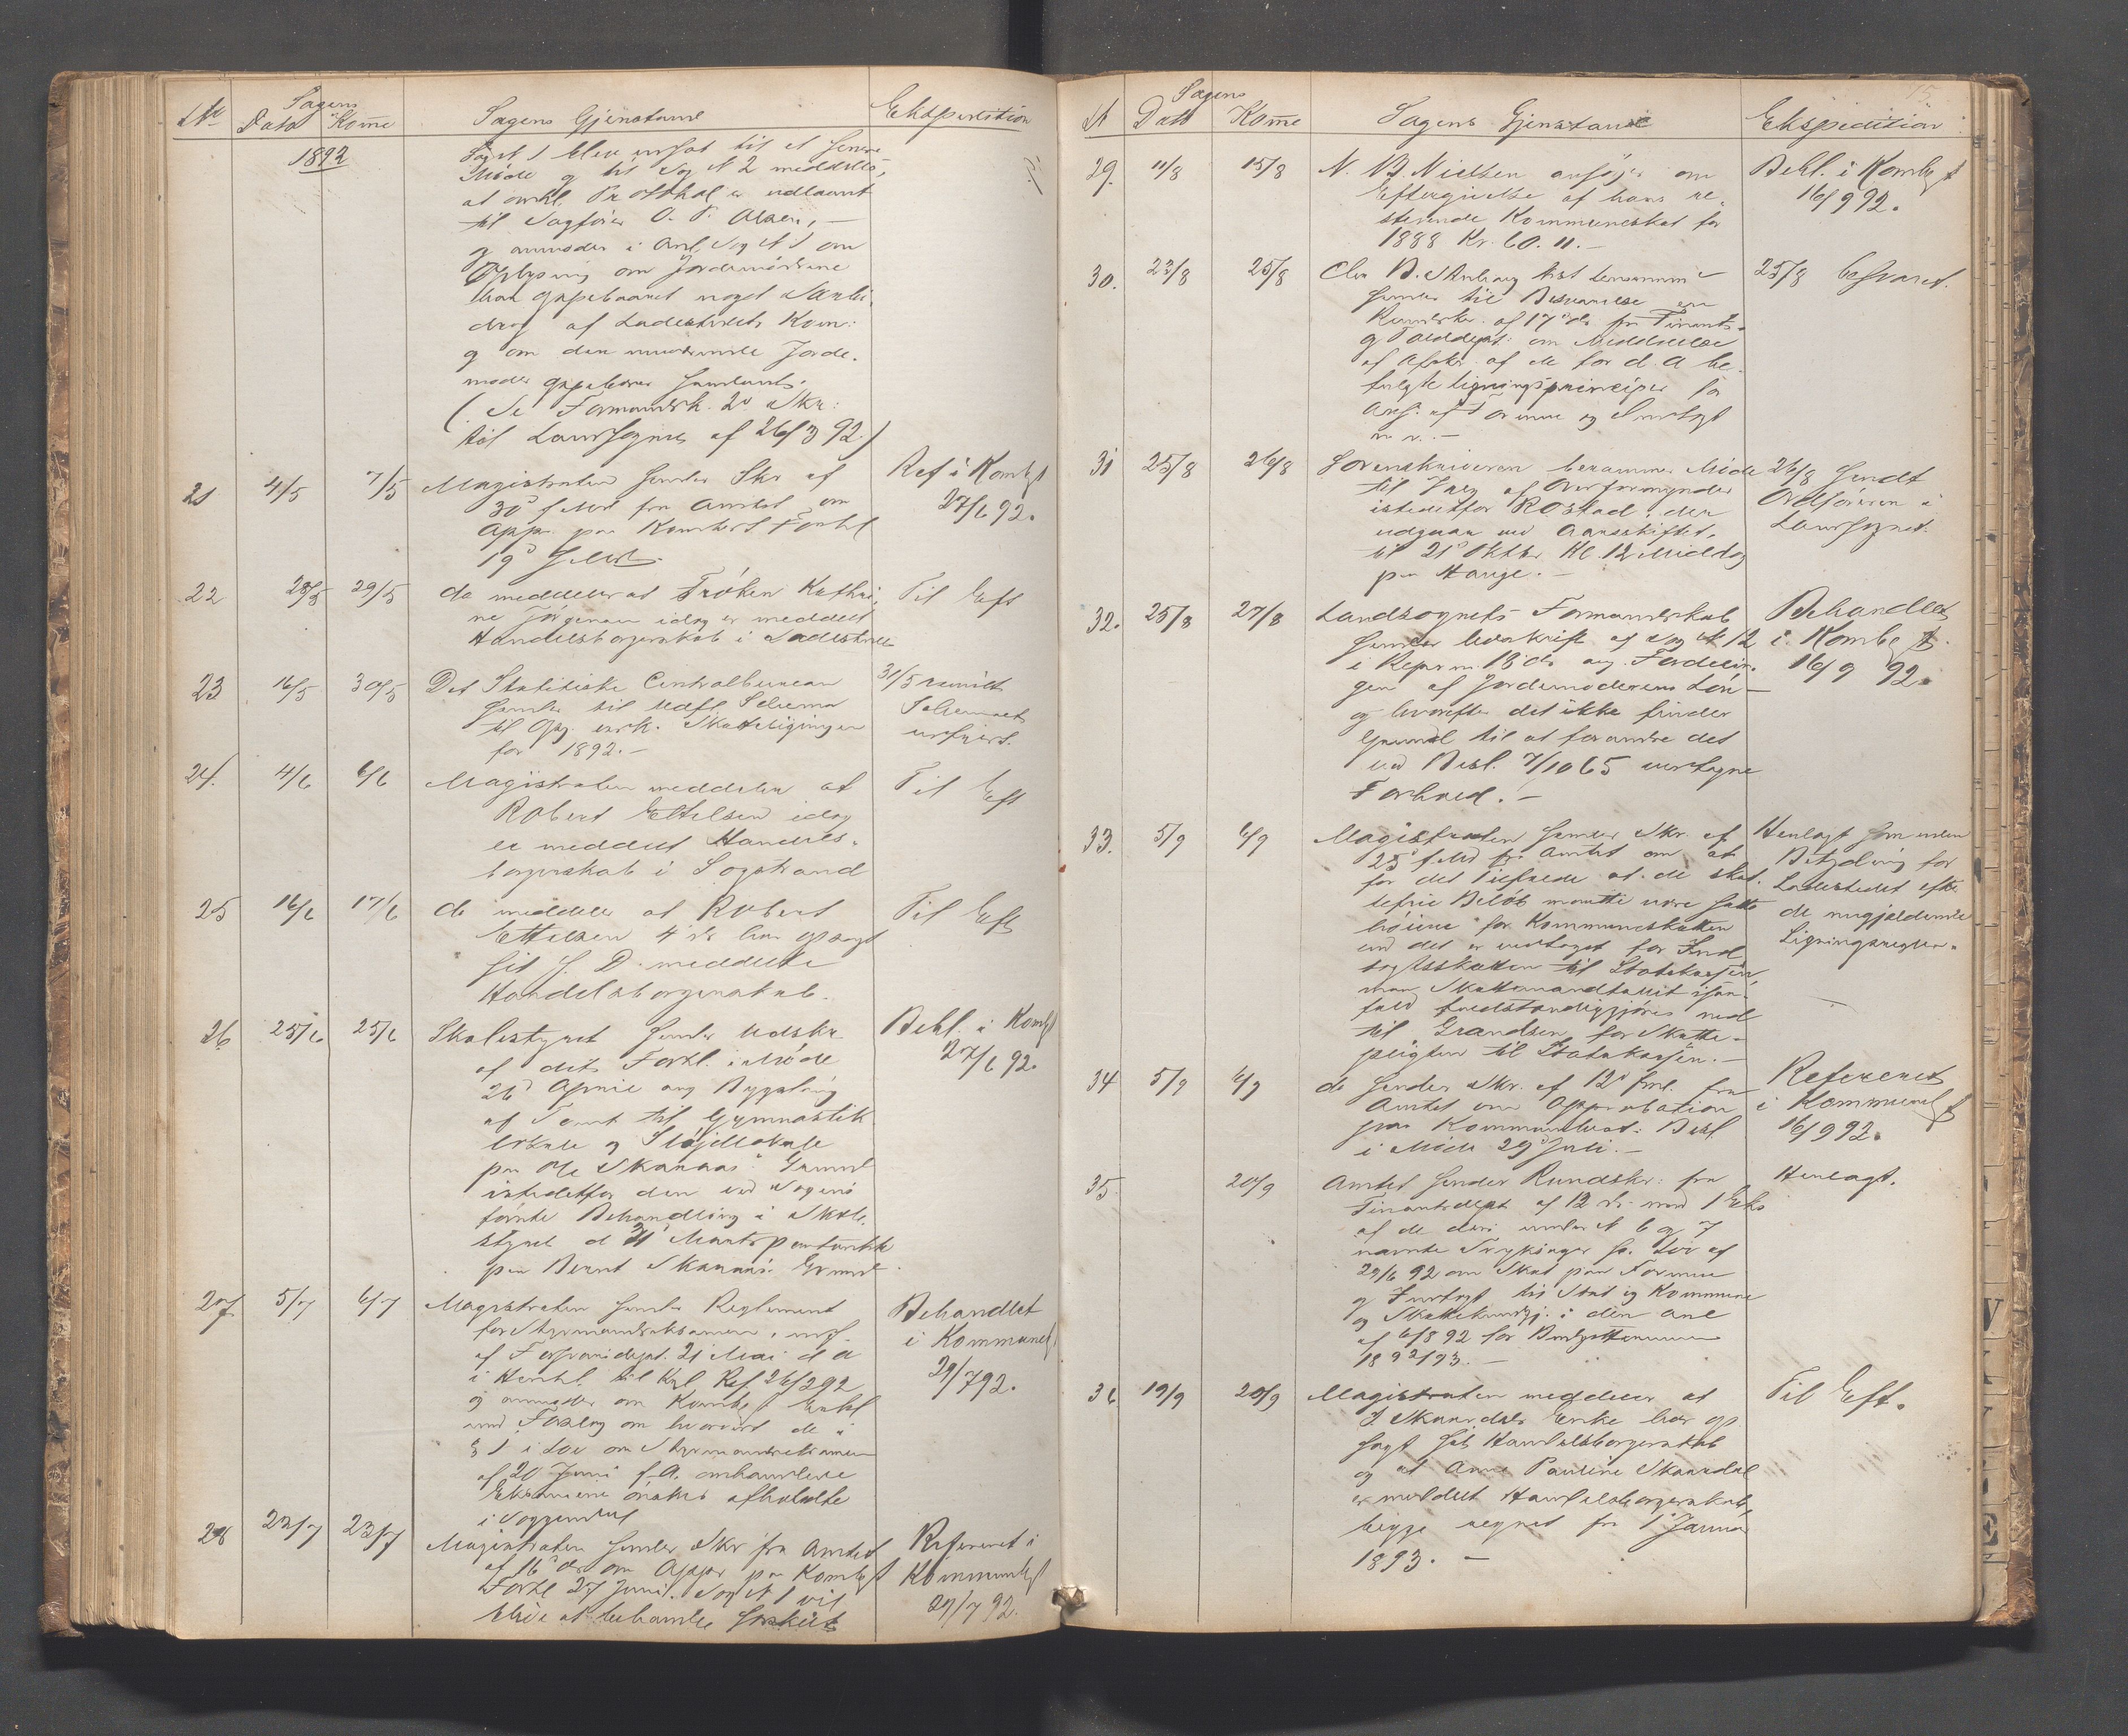 № Sagens Dato Komme Sagens Gjenstand Ekspedition
1892
Sag № 1 blev udsat til et senere
Møde og til Sag № 2 meddeles,
at omhl. Protokol er udlaant
til Sagfører O. P. Olsen, —
og anmoder i Anl. Sag № 1 om
Oplysning om Jordemødrene
har oppebaaret noget
af Ladestedets Kom:
og om den nuværende Jorde-
moder oppebærer
(Se Formandsk. 2° Skr:
til Landsognet af 26/3 92)
21 4/5 7/5 Magistraten sender Skr af
30' f Md fra Amtet om
App. paa Kombest Forhl
19'
Ref i Kombest
27/6 92.
22 28/5 29/5 do meddeler at Frøken Kathri-
ne Jörgensen idag er meddelt
Handelsborgerskab i Ladestedet
Til Eft
23 16/5 30/5 Det Statistiske Centralbureau
sender til Udf. Schema
til Opg. vedk. Skatteligningen
for 1892.—
31/5 remit
Schemaet
udfyldt.
24. 4/6 6/6 Magistraten meddeler at
Robert Ettelsen idag
er meddelt Handels-
borgerskab i Sogstrand
Til Eft
25 16/6 17/6 do meddeler at Robert
Ettelsen 4 ds har opsagt
sit s. D. meddelte
Handelsborgerskab.
Til Eft
26 25/6 25/6 Skolestyret sender Udskr
af dets Forhl. i Møde
26' April ang Bygsling
af Tomt til Gymnastik
lokale og Sløjdlokale
paa Ole Skaraas' Grund
istedetfor den ved Sagens
første Behandling i Skole-
styret d 31' Marts paatænkte
paa Bernt Skaraas' Grund
Behl. i Kombst
27/6 92.
27 5/7 6/7 Magistraten sender Reglement
for Styrmandseksamen, udf.
af Forsvarsdept. 21 Mai d a
i Henh. til Kgl Res 26/2 92
og anmoder om Kombest Erkl
med Forslag om hvorvidt de i
§ 1 i Lov om Styrmandseksamen
af 20 Juni f. A. omhandlede
Eksamener ønskes afholdte
i Soggendal
Behandlet
i Kommunebst
29/7 92.
28 22/7 23/7 Magistraten sender Skr fra Amtet
af 16' ds om Appr paa Kombest
Forhl 27 Juni. Sag № 1 vil
blive at behandle særskilt
Refereret i
Kommunebst
29/7 92.
№ Sagens Dato Komme Sagens Gjenstand Ekspedition
29. 11/8 15/8 N. B. Nielsen ansøger om
Eftergivelse af hans re-
sterende Kommuneskat for
1888 Kr. 60. 11.—
Behl. i Kombest
16/9 92.
30. 23/8 25/8
sender til Besvarelse en
Rundskr. af 17' ds fra Finants-
og Tolddept: om Meddelelse
af Afskr. af de for d. A be-
fulgte Ligningsprinciper for
Ans. af Formue og Indtægt
m. v.—
25/8 besvaret.
31 25/8 26/8 Sorenskriveren berammer Møde
til Valg af Overformynder
istedetfor Rostad, der
udgaar ved Aarsskiftet,
til 21' Oktbr Kl. 12 Middag
paa Hauge.—
26/8 sendt
Ordføreren i
Landsognet.
32. 25/8 27/8 Landsognets Formandskab
sender Udskrift af Sag № 12
i Repr m. 18' ds ang. Fordelin-
gen af Jordemoderens Løn —
og hvorefter det ikke finder
Grund til at forandre det
ved Besl. 7/10 65 vedtagne
Forhold.—
Behandlet
i Kombest.
16/9 92.
33. 5/9 6/9 Magistraten sender Skr. af
25' f Md fra Amtet om at
for det Tilfælde at de skat-
tefrie Beløb maatte være satte
høiere for Kommuneskatten
end det er vedtaget for Ind-
tægtsskatten til Statskassen,
maa Skattemandtallet isaa-
fald fuldstændiggjøres ned
til Grændsen for Skatte-
pligten til Statskassen.—
Henlagt som uden
Betydning for
Ladestedet efter
de nugjældende
Ligningsregler.
34 5/9 6/9 do sender Skr. af 12' f m. fra
Amtet om Approbation
paa Kommunebest: Besl.
i Møde 29' Juli.—
Refereret
i Kommunebst
16/9 92.
35 20/9 Amtet sender Rundskr: fra
Finantsdept af 12 ds med 1 Eks
af de deri under № 6 og 7
nævnte Trykninger fr. Lov af
29/6 92 om Skat paa Formue
og Indtægt til Stat og Kommune
og Skattekundgj. i den Anl
af 6/8 92 for Budgetterminen
1892/93.—
Henlagt.
36 19/9 20/9 Magistraten meddeler at
J Skaardals Enke har op-
sagt sit Handelsborgerskab
og at Anna Pauline Skaardal
er meddelt Handelsborgerskab,
begge regnet fra 1' Januar
1893.—
Til Eft.